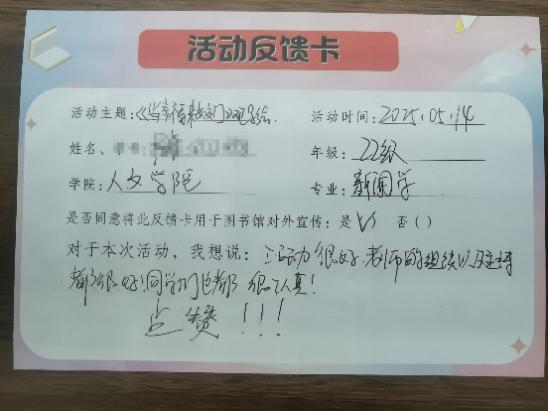 活动反馈卡
活动主题:《当幸福来敲门》观影会
活动时间:2025.05.14
姓名、
年级:22级
学院:人文学院
专业:新闻学
是否同意将此反馈卡用于图书馆对外宣传:是(√) 否( )
对于本次活动,我想说:活动很好,老师的组织以及主持
都很好!同学们也都很认真!
点赞!!!